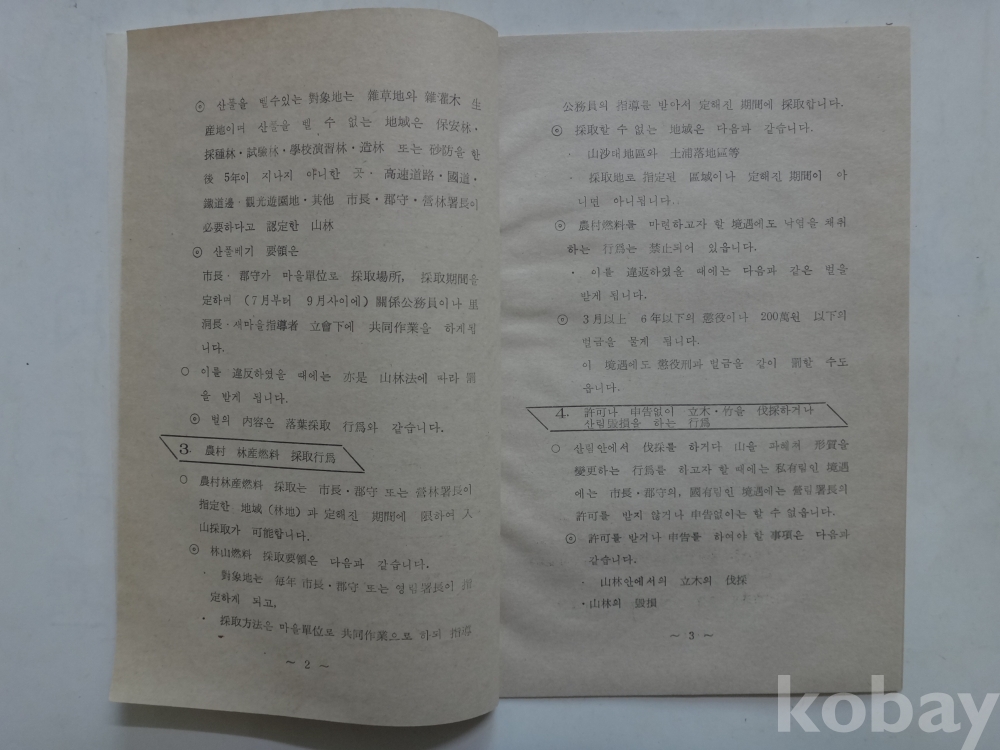 ◎ 산풀을 벨수있는 對象地는 雜草地와 雜灌木 生
産地이며 산풀을 벨 수 없는 地域은 保安林·
採種林·試驗林·學校演習林·造林 또는 砂防을 한
後 5年이 지나지 아니한 곳·高速道路·國道·
鐵道邊·觀光遊園地·其他 市長·郡守·營林署長이
必要하다고 認定한 山林
◎ 산풀베기 要領은
市長·郡守가 마을單位로 採取場所, 採取期間을
定하며 (7月부터 9月사이에) 關係公務員이나 里
洞長·새마을指導者 立會下에 共同作業을 하게됩
니다.
○ 이를 違反하였을 때에는 亦是 山林法에 따라 罰
을 받게 됩니다.
◎ 벌의 内容은 落葉採取 行爲와 같습니다.
3. 農村 林産燃料 採取行爲
○ 農村林産燃料 採取는 市長·郡守 또는 營林署長이
指定한 地域 (林地)과 定해진 期間에 限하여 入
山採取가 可能합니다.
◎ 林山燃料 採取要領은 다음과 같습니다.
· 對象地는 每年 市長·郡守 또는 영림署長이 指
定하게 되고,
· 採取方法은 마을單位로 共同作業으로 하되 指導
~ 2 ~
公務員의 指導를 받아서 定해진 期間에 採取합니다.
◎ 採取할 수 없는 地域은 다음과 같습니다.
· 山沙대地區와 土浦落地區等
· 採取地로 指定된 區域이나 定해진 期間이 아
니면 아니됩니다.
◎ 農村燃料를 마련하고자 할 境遇에도 낙엽을 채취
하는 行爲는 禁止되어 있읍니다.
· 이를 違返하였을 때에는 다음과 같은 벌을
받게 됩니다.
◎ 3月以上 6年以下의 懲役이나 200萬원 以下의
벌금을 물게 됩니다.
이 境遇에도 懲役刑과 벌금을 같이 罰할 수도
읍니다.
4. 許可나 申告없이 立木·竹을 伐採하거나
산림毁損을 하는 行爲
○ 산림안에서 伐採를 하거다 山을 파헤쳐 形質을
變更하는 行爲를 하고자 할 때에는 私有림인 境遇
에는 市長·郡守의, 國有림인 境遇에는 營림署長의
許可를 받지 않거나 申告없이는 할 수 없읍니다.
◎ 許可를 받거나 申告를 하여야 할 事項은 다음과
같습니다.
· 山林안에서의 立木의 伐採
· 山林의 毁損
~ 3 ~
kobay